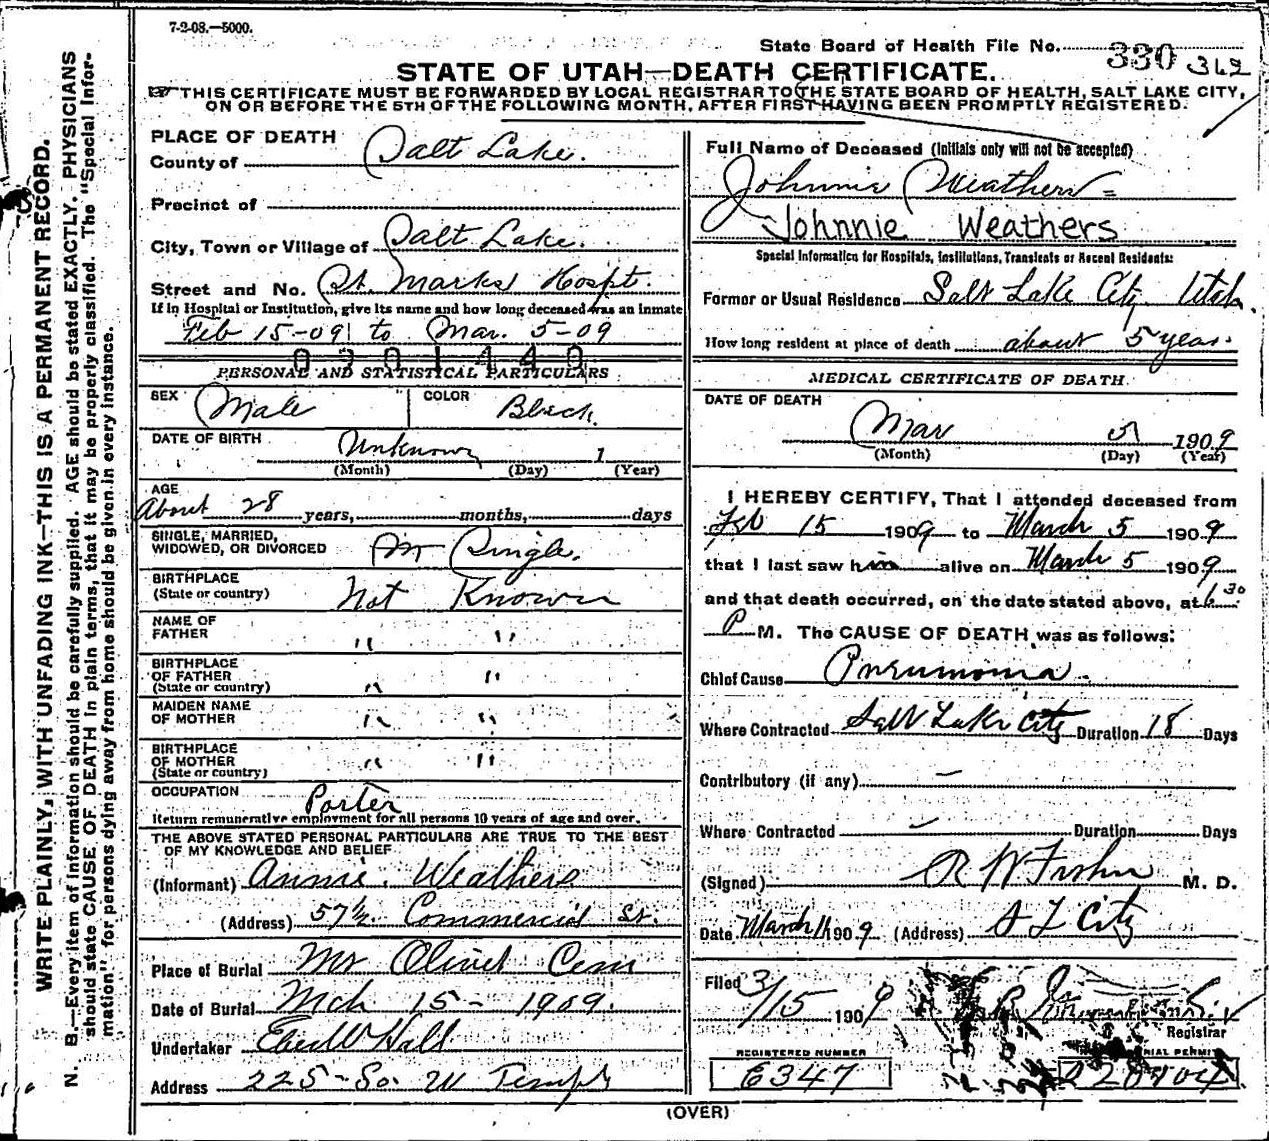 7-2-08.—5000.
State Board of Health File No. 330 342
STATE OF UTAH—DEATH CERTIFICATE.
THIS CERTIFICATE MUST BE FORWARDED BY LOCAL REGISTRAR TO THE STATE BOARD OF HEALTH, SALT LAKE CITY,
ON OR BEFORE THE 5TH OF THE FOLLOWING MONTH, AFTER FIRST HAVING BEEN PROMPTLY REGISTERED.
WRITE PLAINLY, WITH UNFADING INK—THIS IS A PERMANENT RECORD.
N. B.—Every item of information should be carefully supplied. AGE should be stated EXACTLY. PHYSICIANS
should state CAUSE OF DEATH in plain terms, that it may be properly classified. The "Special Infor-
mation" for persons dying away from home should be given in every instance.
PLACE OF DEATH
County of Salt Lake.
Precinct of
City, Town or Village of Salt Lake.
Street and No. St. Marks Hospt.
If in Hospital or Institution, give its name and how long deceased was an inmate
Feb 15-09 to Mar. 5-09
0301440
PERSONAL AND STATISTICAL PARTICULARS
SEX Male COLOR Black.
DATE OF BIRTH Unknown 1
(Month) (Day) (Year)
AGE
About 28 years, months, days
SINGLE, MARRIED,
WIDOWED, OR DIVORCED Single.
BIRTHPLACE
(State or country) Not Known
NAME OF
FATHER " "
BIRTHPLACE
OF FATHER
(State or country) " "
MAIDEN NAME
OF MOTHER " "
BIRTHPLACE
OF MOTHER
(State or country) " "
OCCUPATION Porter
Return remunerative employment for all persons 10 years of age and over.
THE ABOVE STATED PERSONAL PARTICULARS ARE TRUE TO THE BEST
OF MY KNOWLEDGE AND BELIEF
(Informant) Annie. Weathers
(Address) 57½ Commercial St.
Place of Burial Mt Olivet Cem
Date of Burial Mch 15 - 1909.
Undertaker Eber W Hall
Address 225 - So. W Temple
Full Name of Deceased (Initials only will not be accepted)
Johnnie Weathers
Johnnie Weathers
Special Information for Hospitals, Institutions, Transients or Recent Residents:
Former or Usual Residence Salt Lake City Utah.
How long resident at place of death about 5 years.
MEDICAL CERTIFICATE OF DEATH.
DATE OF DEATH
Mar 5 1909
(Month) (Day) (Year)
I HEREBY CERTIFY, That I attended deceased from
Feb 15 1909 to March 5 1909
that I last saw him alive on March 5 1909
and that death occurred, on the date stated above, at 6.30
P M. The CAUSE OF DEATH was as follows:
Chief Cause Pneumonia.
Where Contracted Salt Lake City Duration 18 Days
Contributory (if any) —
Where Contracted — Duration Days
(Signed) R W M. D.
Date March 11 1909 (Address) S L City
Filed 3/15 1909
Registrar
REGISTERED NUMBER
6347
(OVER)